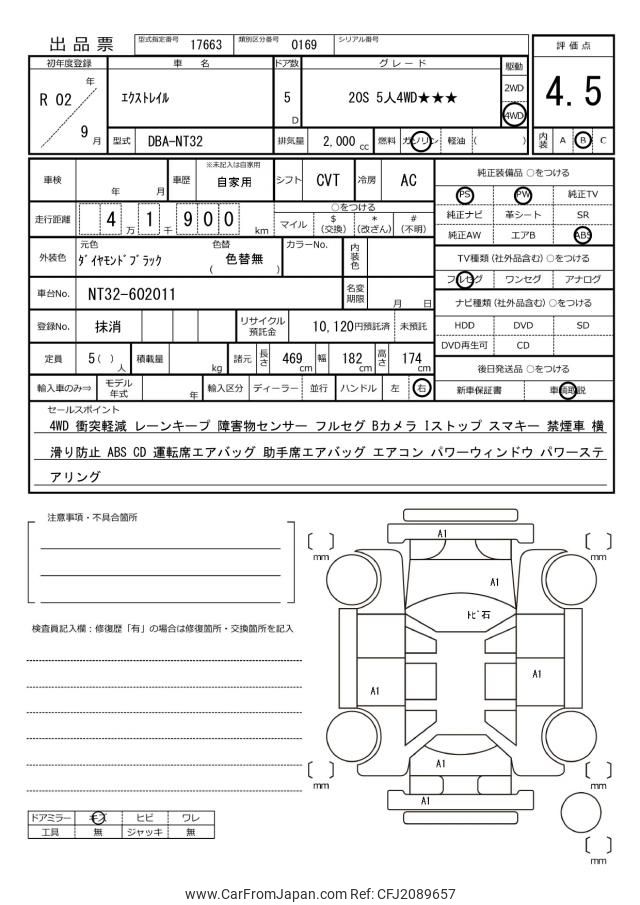 出品票 型式指定番号 17663 類別区分番号 0169 シリアル番号
評価点
4.5
内装 A B C
初年度登録 車 名 ドア数 グレード 駆動
R 02 年 9 月
エクストレイル 5 D 20S 5人4WD★★★ 2WD 4WD
型式 DBA-NT32 排気量 2,000 cc 燃料 ガソリン 軽油 ( )
車検 年 月 車歴 ※未記入は自家用 自家用 シフト CVT 冷房 AC
走行距離 4 万 1 千 9 0 0 km
○をつける
マイル $ (交換) * (改ざん) # (不明)
外装色 元色 ダイヤモンドブラック 色替 ( 色替無 ) カラーNo. 内装色
車台No. NT32-602011 名変期限 月 日
登録No. 抹消 リサイクル預託金 10,120円預託済 未預託
定員 5( ) 人 積載量 kg 諸元 長さ 469 cm 幅 182 cm 高さ 174 cm
輸入車のみ⇒ モデル年式 年 輸入区分 ディーラー 並行 ハンドル 左 右
純正装備品 ○をつける
PS PW 純正TV
純正ナビ 革シート SR
純正AW エアB ABS
TV種類 (社外品含む) ○をつける
フルセグ ワンセグ アナログ
ナビ種類 (社外品含む) ○をつける
HDD DVD SD
DVD再生可 CD
後日発送品 ○をつける
新車保証書 車輌取説
セールスポイント
4WD 衝突軽減 レーンキープ 障害物センサー フルセグ Bカメラ Iストップ スマキー 禁煙車 横
滑り防止 ABS CD 運転席エアバッグ 助手席エアバッグ エアコン パワーウィンドウ パワーステ
アリング
注意事項・不具合箇所
検査員記入欄：修復歴「有」の場合は修復箇所・交換箇所を記入
ドアミラー キズ ヒビ ワレ
工具 無 ジャッキ 無
A1
mm
mm
A1
トビ石
A1
A1
A1
mm
mm
A1
mm
www.CarFromJapan.com Ref: CFJ2089657